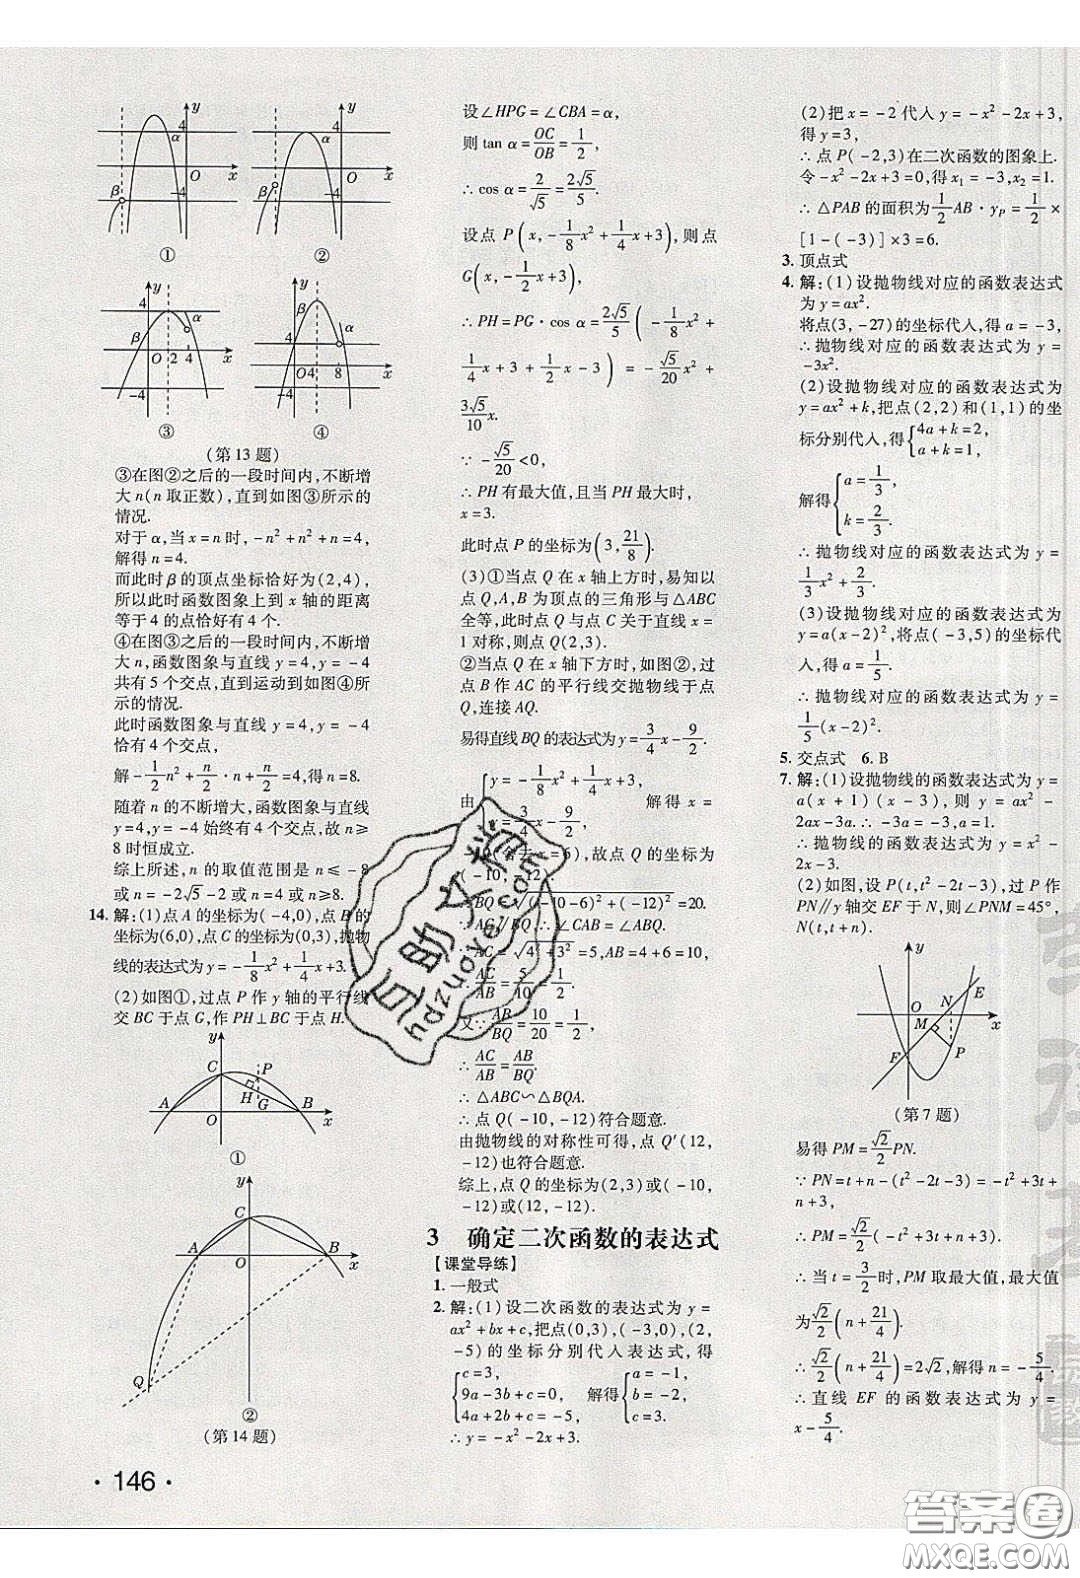 y
4
α
O
x
β
-4
①
y
4
α
O
x
β
-4
②
y
4
α
β
O
2
4
x
-4
③
y
α
4
β
O
4
8
x
-4
④
(第13题)
③在图②之后的一段时间内,不断增
大n(n取正数),直到如图③所示的
情况.
对于α,当x=n时,-n²+n²+n=4,
解得n=4.
而此时β的顶点坐标恰好为(2,4),
所以此时函数图象上到x轴的距离
等于4的点恰好有4个.
④在图③之后的一段时间内,不断增
大n,函数图象与直线y=4,y=-4
共有5个交点,直到运动到如图④所
示的情况.
此时函数图象与直线y=4,y=-4
恰有4个交点,
解-1/2n²+n/2·n+n/2=4,得n=8.
随着n的不断增大,函数图象与直线
y=4,y=-4始终有4个交点,故n≥
8时恒成立.
综上所述,n的取值范围是n≤-8
或n=-2√5-2或n=4或n≥8.
14.解:(1)点A的坐标为(-4,0),点B的
坐标为(6,0),点C的坐标为(0,3),抛物
线的表达式为y=-1/8x²+1/4x+3.
(2)如图①,过点P作y轴的平行线
交BC于点G,作PH⊥BC于点H.
y
C
P
H
G
A
O
B
x
①
y
C
A
O
B
x
Q
②
(第14题)
·146·
设∠HPG=∠CBA=α,
则tan α=OC/OB=1/2,
∴cos α=2/√5=2√5/5.
设点P(x,-1/8x²+1/4x+3),则点
G(x,-1/2x+3),
∴PH=PG·cos α=2√5/5(-1/8x²+
1/4x+3+1/2x-3)=-√5/20x²+
3√5/10x.
∵-√5/20<0,
∴PH有最大值,且当PH最大时,
x=3.
此时点P的坐标为(3,21/8).
(3)①当点Q在x轴上方时,易知以
点Q,A,B为顶点的三角形与△ABC
全等,此时点Q与点C关于直线x=
1对称,则点Q(2,3).
②当点Q在x轴下方时,如图②,过
点B作AC的平行线交抛物线于点
Q,连接AQ.
易得直线BQ的表达式为y=3/4x-9/2.
由{y=-1/8x²+1/4x+3, y=3/4x-9/2, 解得x=
-10(舍去x=6),故点Q的坐标为
(-10,-12).
∴BQ=√(-10-6)²+(-12)²=20.
∵AC∥BQ,∴∠CAB=∠ABQ.
∵AC=√4²+3²=5,AB=4+6=10,
∴AC/AB=5/10=1/2.
又∵AB/BQ=10/20=1/2,
∴AC/AB=AB/BQ.
∴△ABC∽△BQA.
∴点Q(-10,-12)符合题意.
由抛物线的对称性可得,点Q′(12,
-12)也符合题意.
综上,点Q的坐标为(2,3)或(-10,
-12)或(12,-12).
3 确定二次函数的表达式
【课堂导练】
1.一般式
2.解:(1)设二次函数的表达式为y=
ax²+bx+c,把点(0,3),(-3,0),(2,
-5)的坐标分别代入表达式,得
{c=3, 9a-3b+c=0, 4a+2b+c=-5, 解得{a=-1, b=-2, c=3.
∴y=-x²-2x+3.
(2)把x=-2代入y=-x²-2x+3,
得y=3,
∴点P(-2,3)在二次函数的图象上.
令-x²-2x+3=0,得x₁=-3,x₂=1.
∴△PAB的面积为1/2AB·yP=1/2×
[1-(-3)]×3=6.
3.顶点式
4.解:(1)设抛物线对应的函数表达式
为y=ax².
将点(3,-27)的坐标代入,得a=-3,
∴抛物线对应的函数表达式为y=
-3x².
(2)设抛物线对应的函数表达式为
y=ax²+k,把点(2,2)和(1,1)的坐
标分别代入,得{4a+k=2, a+k=1,
解得{a=1/3, k=2/3.
∴抛物线对应的函数表达式为y=
1/3x²+2/3.
(3)设抛物线对应的函数表达式为
y=a(x-2)²,将点(-3,5)的坐标代
入,得a=1/5.
∴抛物线对应的函数表达式为y=
1/5(x-2)².
5.交点式 6.B
7.解:(1)设抛物线的函数表达式为y=
a(x+1)(x-3),则y=ax²-
2ax-3a.∴-3a=-3.∴a=1.
∴抛物线的函数表达式为y=x²-
2x-3.
(2)如图,设P(t,t²-2t-3),过P作
PN∥y轴交EF于N,则∠PNM=45°,
N(t,t+n).
y
O
N
E
M
x
F
P
(第7题)
易得PM=√2/2PN.
∵PN=t+n-(t²-2t-3)=-t²+3t+
n+3,
∴PM=√2/2(-t²+3t+n+3),
∴当t=3/2时,PM取最大值,最大值
为√2/2(n+21/4).
∴√2/2(n+21/4)=2√2,解得n=-5/4.
∴直线EF的函数表达式为y=
x-5/4.
自助文档
Zizhuwendang.com
答案圈
MXQE.COM